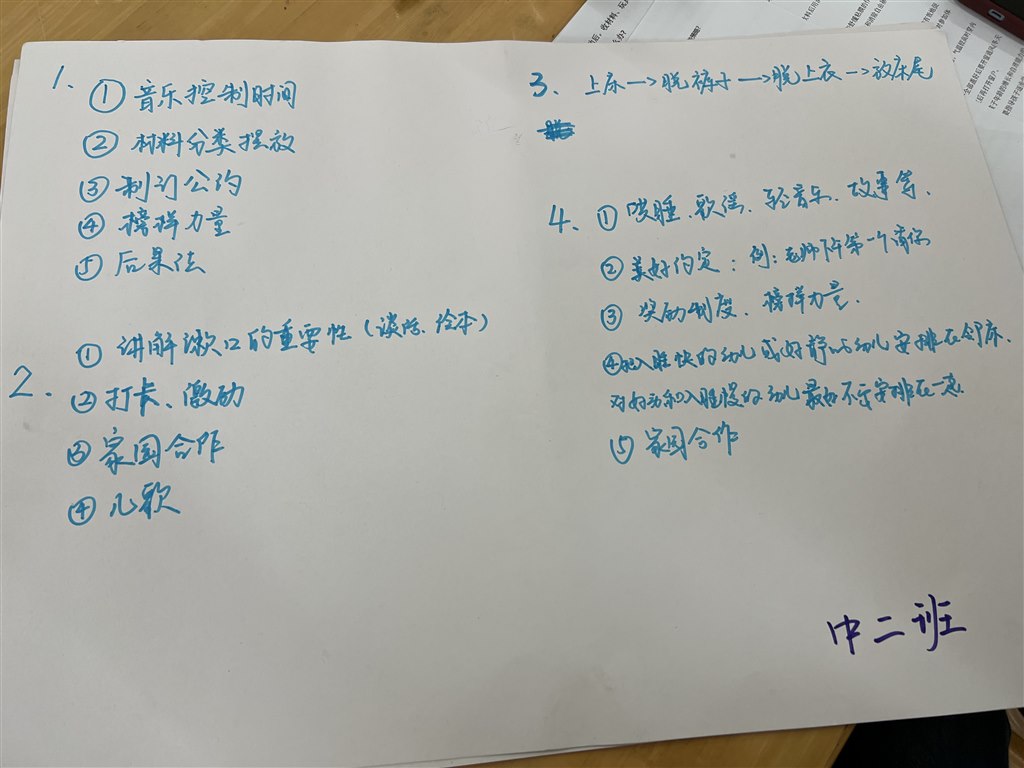 1.
① 音乐控制时间
② 材料分类摆放
③ 制订公约
④ 榜样力量
⑤ 后果法
2.
① 讲解漱口的重要性(谈话、绘本)
② 打卡、激励
③ 家园合作
④ 儿歌
3. 上床→脱裤子→脱上衣→放床尾
4. ① 哄睡、歌谣、轻音乐、故事等.
② 美好约定:例:老师下午第一个离你
③ 奖励制度、榜样力量.
④把入睡快的幼儿或好静的幼儿安排在邻床.
对好动和入睡慢的幼儿最好不予安排在一起
⑤ 家园合作
中二班